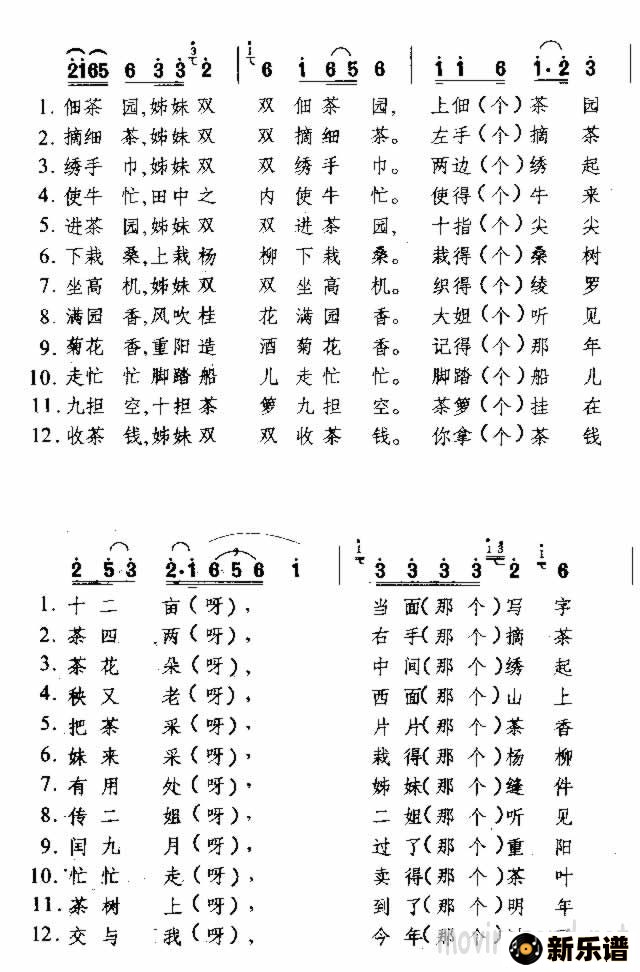 2165 6 3 3 2 6 1 65 6 1 1 6 1·2 3
1. 佃茶园,姊妹双 双佃茶园, 上佃(个)茶园
2. 摘细茶,姊妹双 双摘细茶。左手(个)摘茶
3. 绣手巾,姊妹双 双绣手巾。两边(个)绣起
4. 使牛忙,田中之 内使牛忙。使得(个)牛来
5. 进茶园,姊妹双 双进茶园, 十指(个)尖尖
6. 下栽桑,上栽杨 柳下栽桑。栽得(个)桑树
7. 坐高机,姊妹双 双坐高机。织得(个)绫罗
8. 满园香,风吹桂 花满园香。大姐(个)听见
9. 菊花香,重阳造 酒菊花香。记得(个)那年
10. 走忙忙脚踏船 儿走忙忙。脚踏(个)船儿
11. 九担空,十担茶 箩九担空。茶箩(个)挂在
12. 收茶钱,姊妹双 双收茶钱。你拿(个)茶钱
2 53 2·1 656 1 3 3 3 3 2 6
1. 十二亩(呀), 当面(那个)写字
2. 茶四两(呀), 右手(那个)摘茶
3. 茶花朵(呀), 中间(那个)绣起
4. 秧又老(呀), 西面(那个)山上
5. 把茶采(呀), 片片(那个)茶香
6. 妹来采(呀), 栽得(那个)杨柳
7. 有用处(呀), 姊妹(那个)缝件
8. 传二姐(呀), 二姐(那个)听见
9. 闰九月(呀), 过了(那个)重阳
10. 忙忙走(呀), 卖得(那个)茶叶
11. 茶树上(呀), 到了(那个)明年
12. 交与我(呀), 今年(那个)
新乐谱